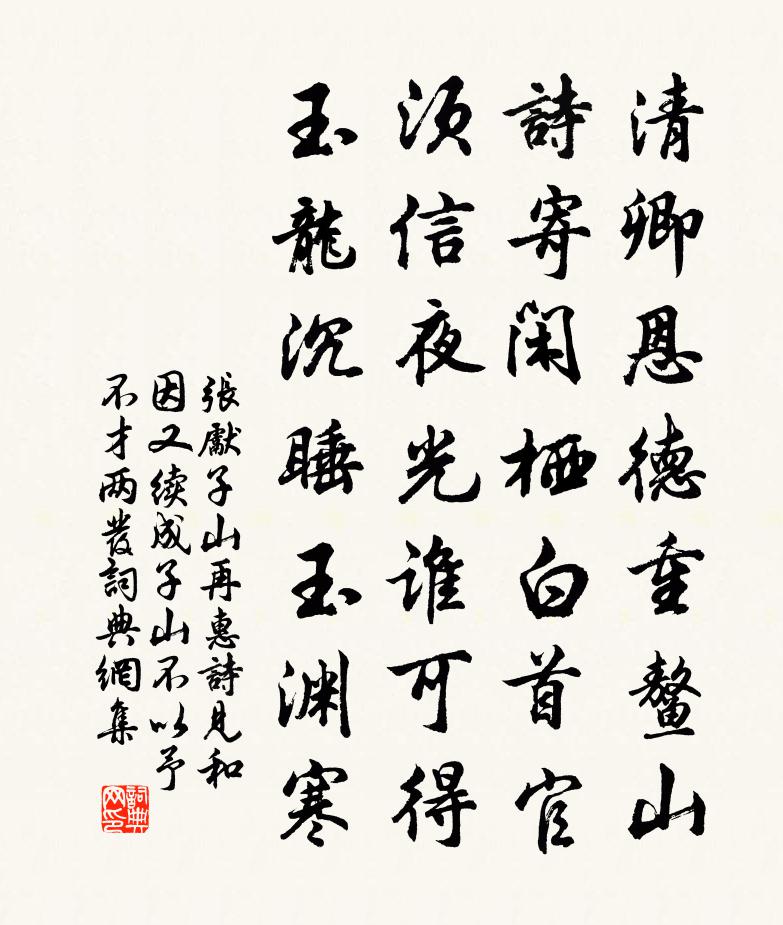 清卿恩德重鳌山
詩寄闲栖白首官
须信夜光誰可得
玉龍沉睡玉渊寒
張獻子山再惠詩見和
因又续成子山不以予
不才两發詞典網集
詞典
网印